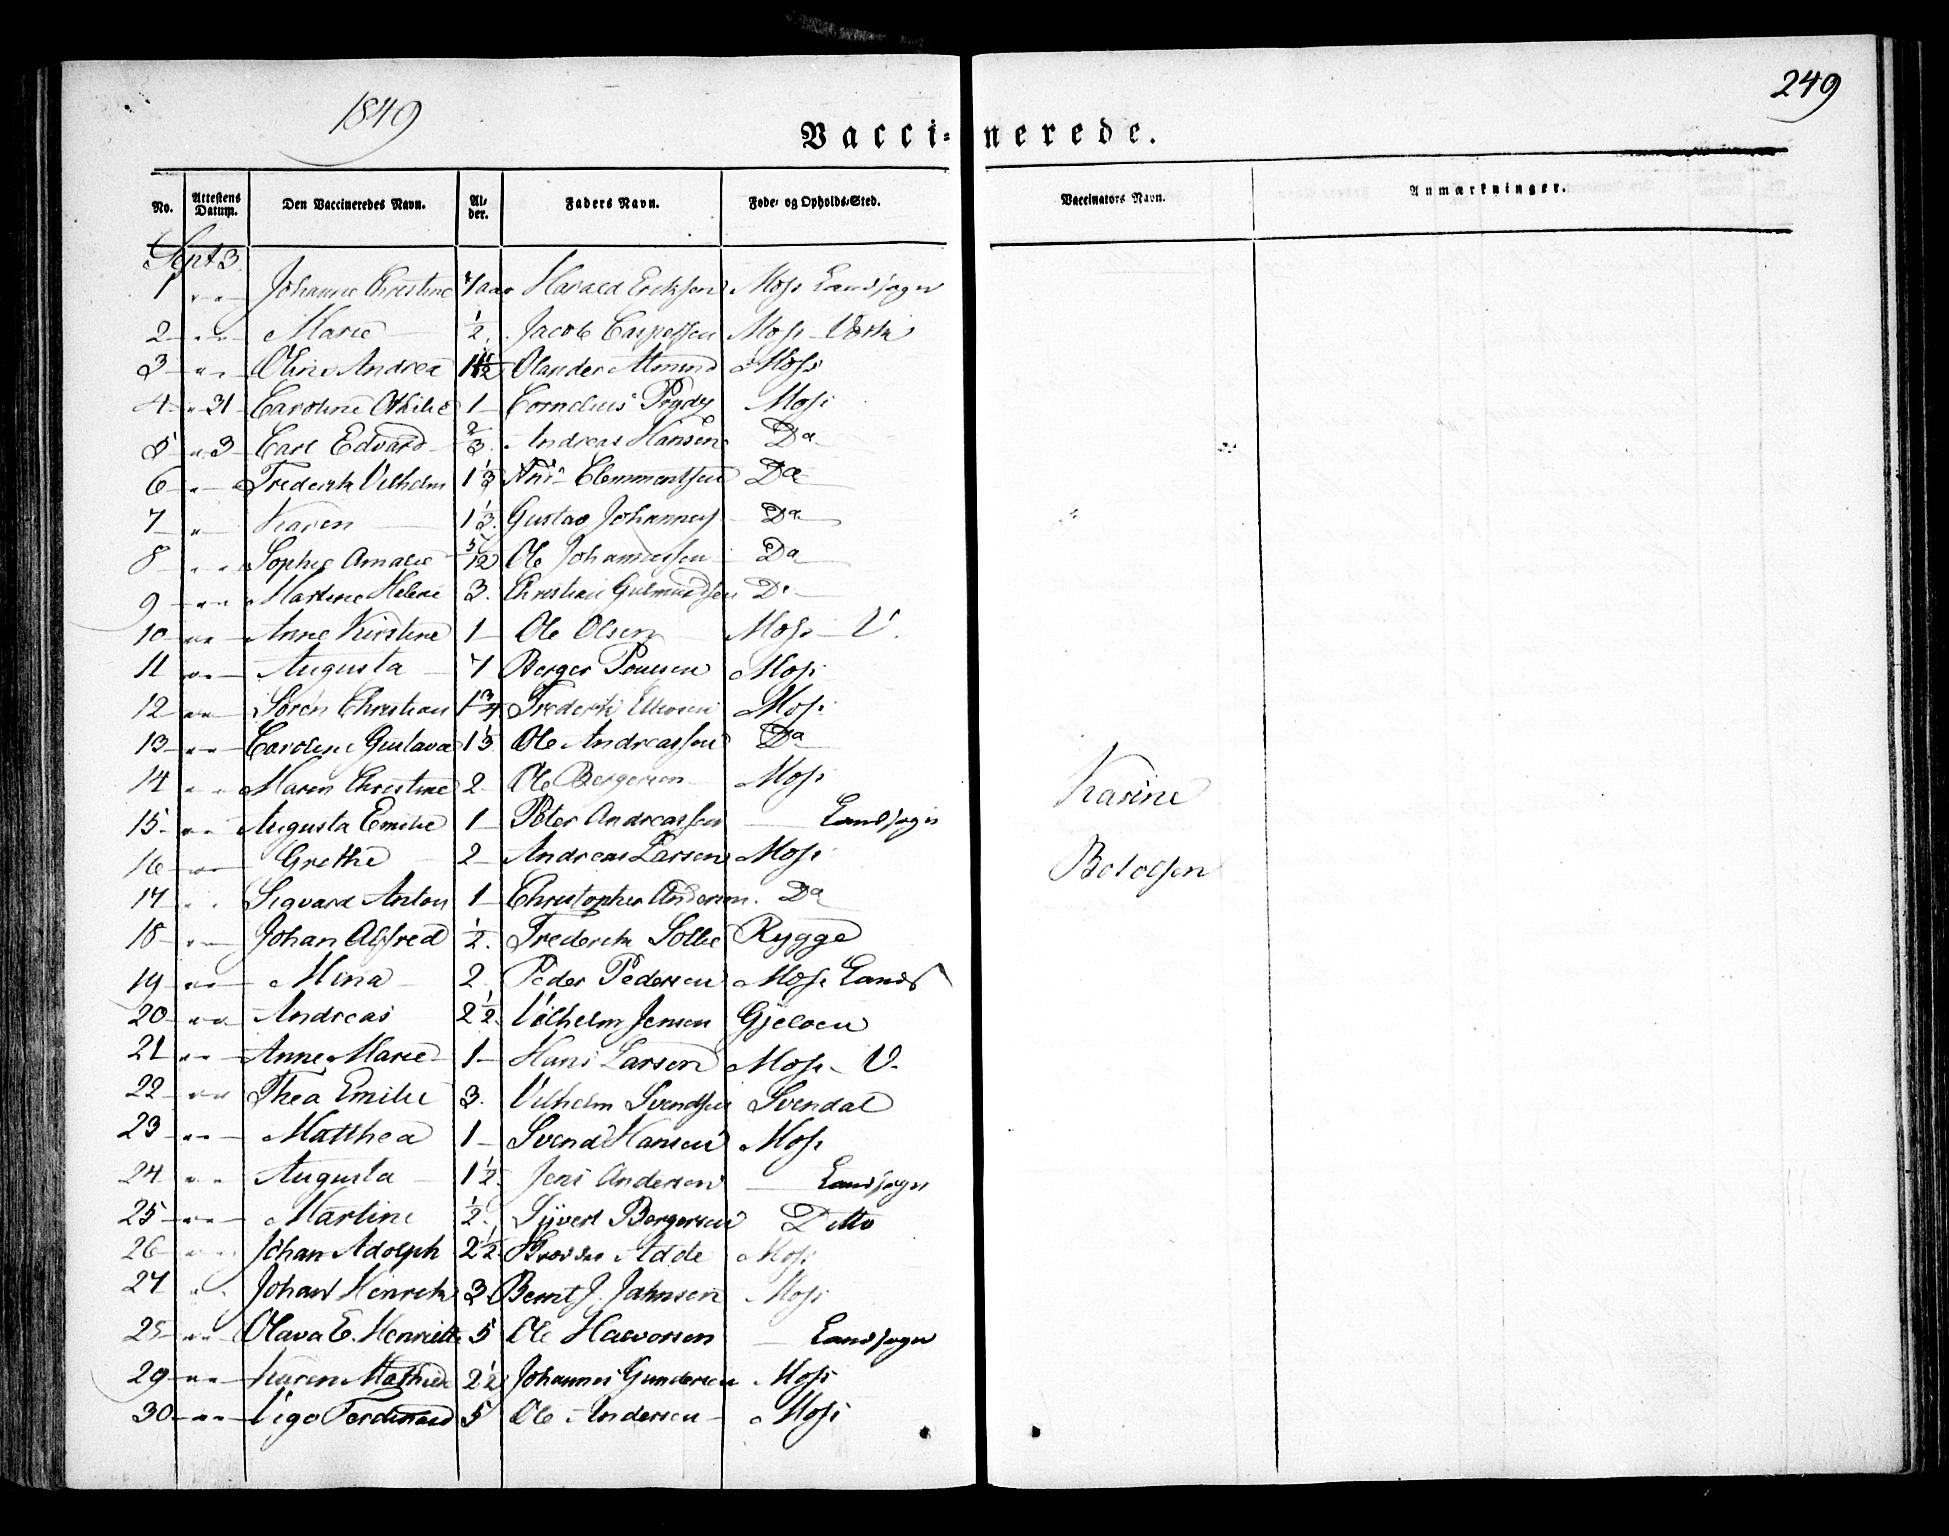 1849
249
Vacci-nerede.
No. Attestens Datum. Den Vaccineredes Navn. Al-der. Faders Navn. Føde- og Opholds-Sted. Vaccinators Navn. Anmærkninger.
Sept 3.
1 " " Johanne Christine 7 aar Harald Eriksen Moss Landsogn
2 " " Marie 1/2 Jacob Caspersen Moss
3 " " Oline Andrea Olander Moss
4 " 31 Caroline Othilie 1 Cornelius Moss
5 " 3 Carl Edvard 2/3 Andreas Hansen Do
6 " Frederik Vilhelm 1 1/3 Clemmentsen Do
7 " Karen 1 1/3 Gustav Johannes Do
8 " " Sophie Amalie 5/12 Ole Johannessen Do
9 " " Martine Helene 3. Christian Gulmundsen Do
10 " " Anne Kirstine 1 Ole Olsen Moss V.
11 " " Augusta 7 Berger Poulsen Moss
12 " " Søren Christian 1 3/4 Frederik Moss
13 " " Caroline Gustava 1 1/3 Ole Andreassen Do
14 " " Maren Christine 2 Ole Bergersen Moss
15 " " Augusta Emilie 1 Peter Andreassen Landsogn
16 " " Grethe 2 Andreas Larsen Moss
17 " " Sigvard Anton 1 Christopher Andersen. Do
18 " Johan Alfred 1/2. Frederik Sollie Rygge
19 " " Mina 2 Peder Pedersen Moss Lands
20 " " Andreas 2 1/2. Vilhelm Jensen Gjeløen
21 " " Anne Marie 1 Hans Larsen Moss V.
22 " " Thea Emilie 3. Vilhelm Svendsen Svendal
23 " " Matthea 1 Svend Hansen Moss
24 " " Augusta 1 1/2 Jens Andersen Landsogn
25 " " Martine 1/2. Syvert Bergersen Ditto
26 " " Johan Adolph 2 1/2 Moss
27 " Johan Henrik 3 Bernt J. Jahnsen Moss
28 " " Olava E. Henriette 5 Ole Halvorsen Landsogn
29 " " Karen Mathea 2 1/2 Johannes Gundersen Moss
30 " " Vigo Ferdinand 5 Ole Andersen Moss
Karine
Botolsen